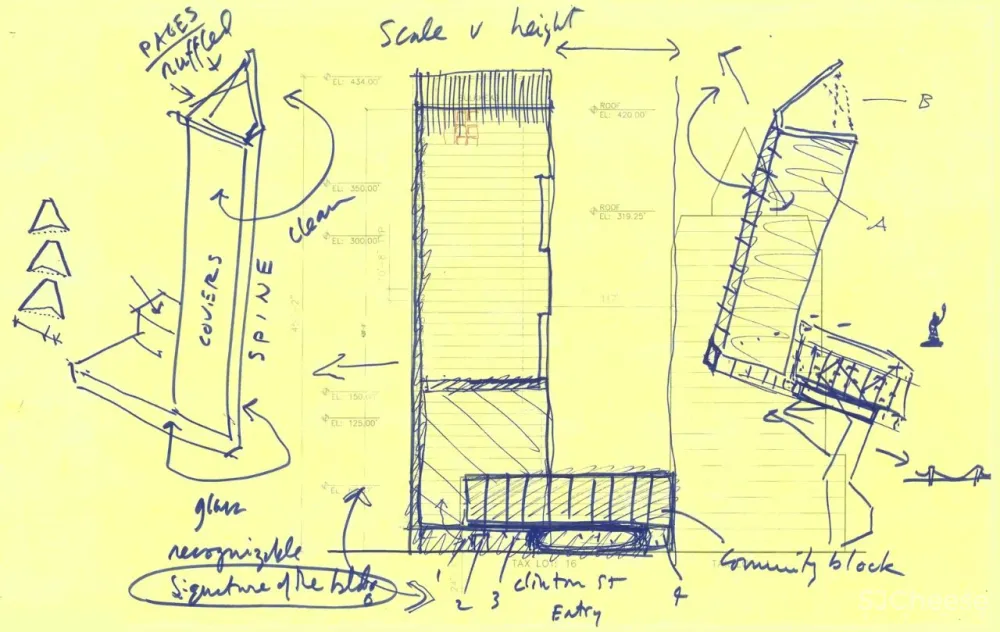 PAGES
ruffled
Scale v height
B
A
clean
COVERS
SPINE
EL: 434.00'
ROOF
EL: 420.00'
EL: 350.00'
ROOF
EL: 319.25'
EL: 300.00'
EL: 125.00'
glass
recognizable
Signature of the bldg
1
2
3
4
TAX LOT: 16
Clinton St
Entry
Community block